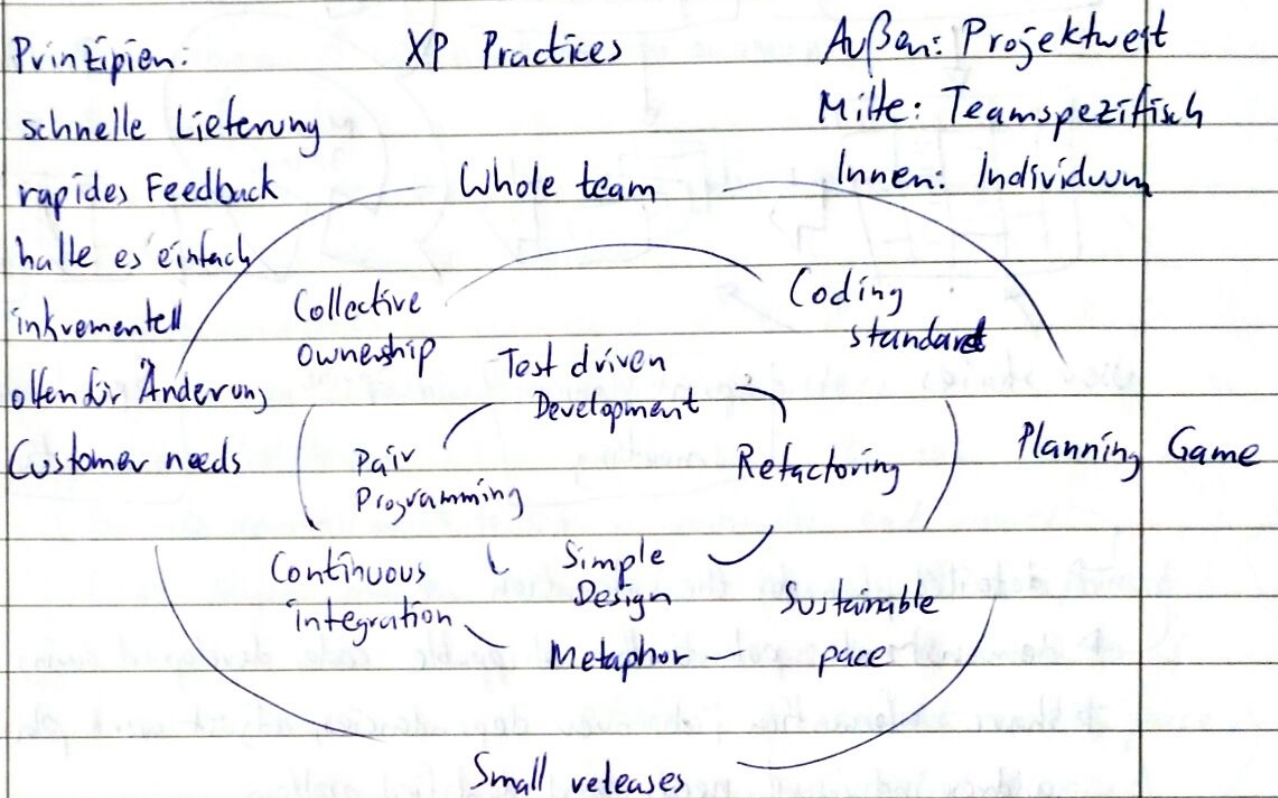 Prinzipien:
schnelle Lieferung
rapides Feedback
halte es einfach
inkrementell
offen für Änderung
Customer needs
XP Practices
Außen: Projektweit
Mitte: Teamspezifisch
Innen: Individuum
Whole team
Collective
ownership
Coding
standard
Test driven
Development
Pair
Programming
Refactoring
Planning Game
Continuous
integration
Simple
Design
Sustainable
pace
Metaphor
Small releases